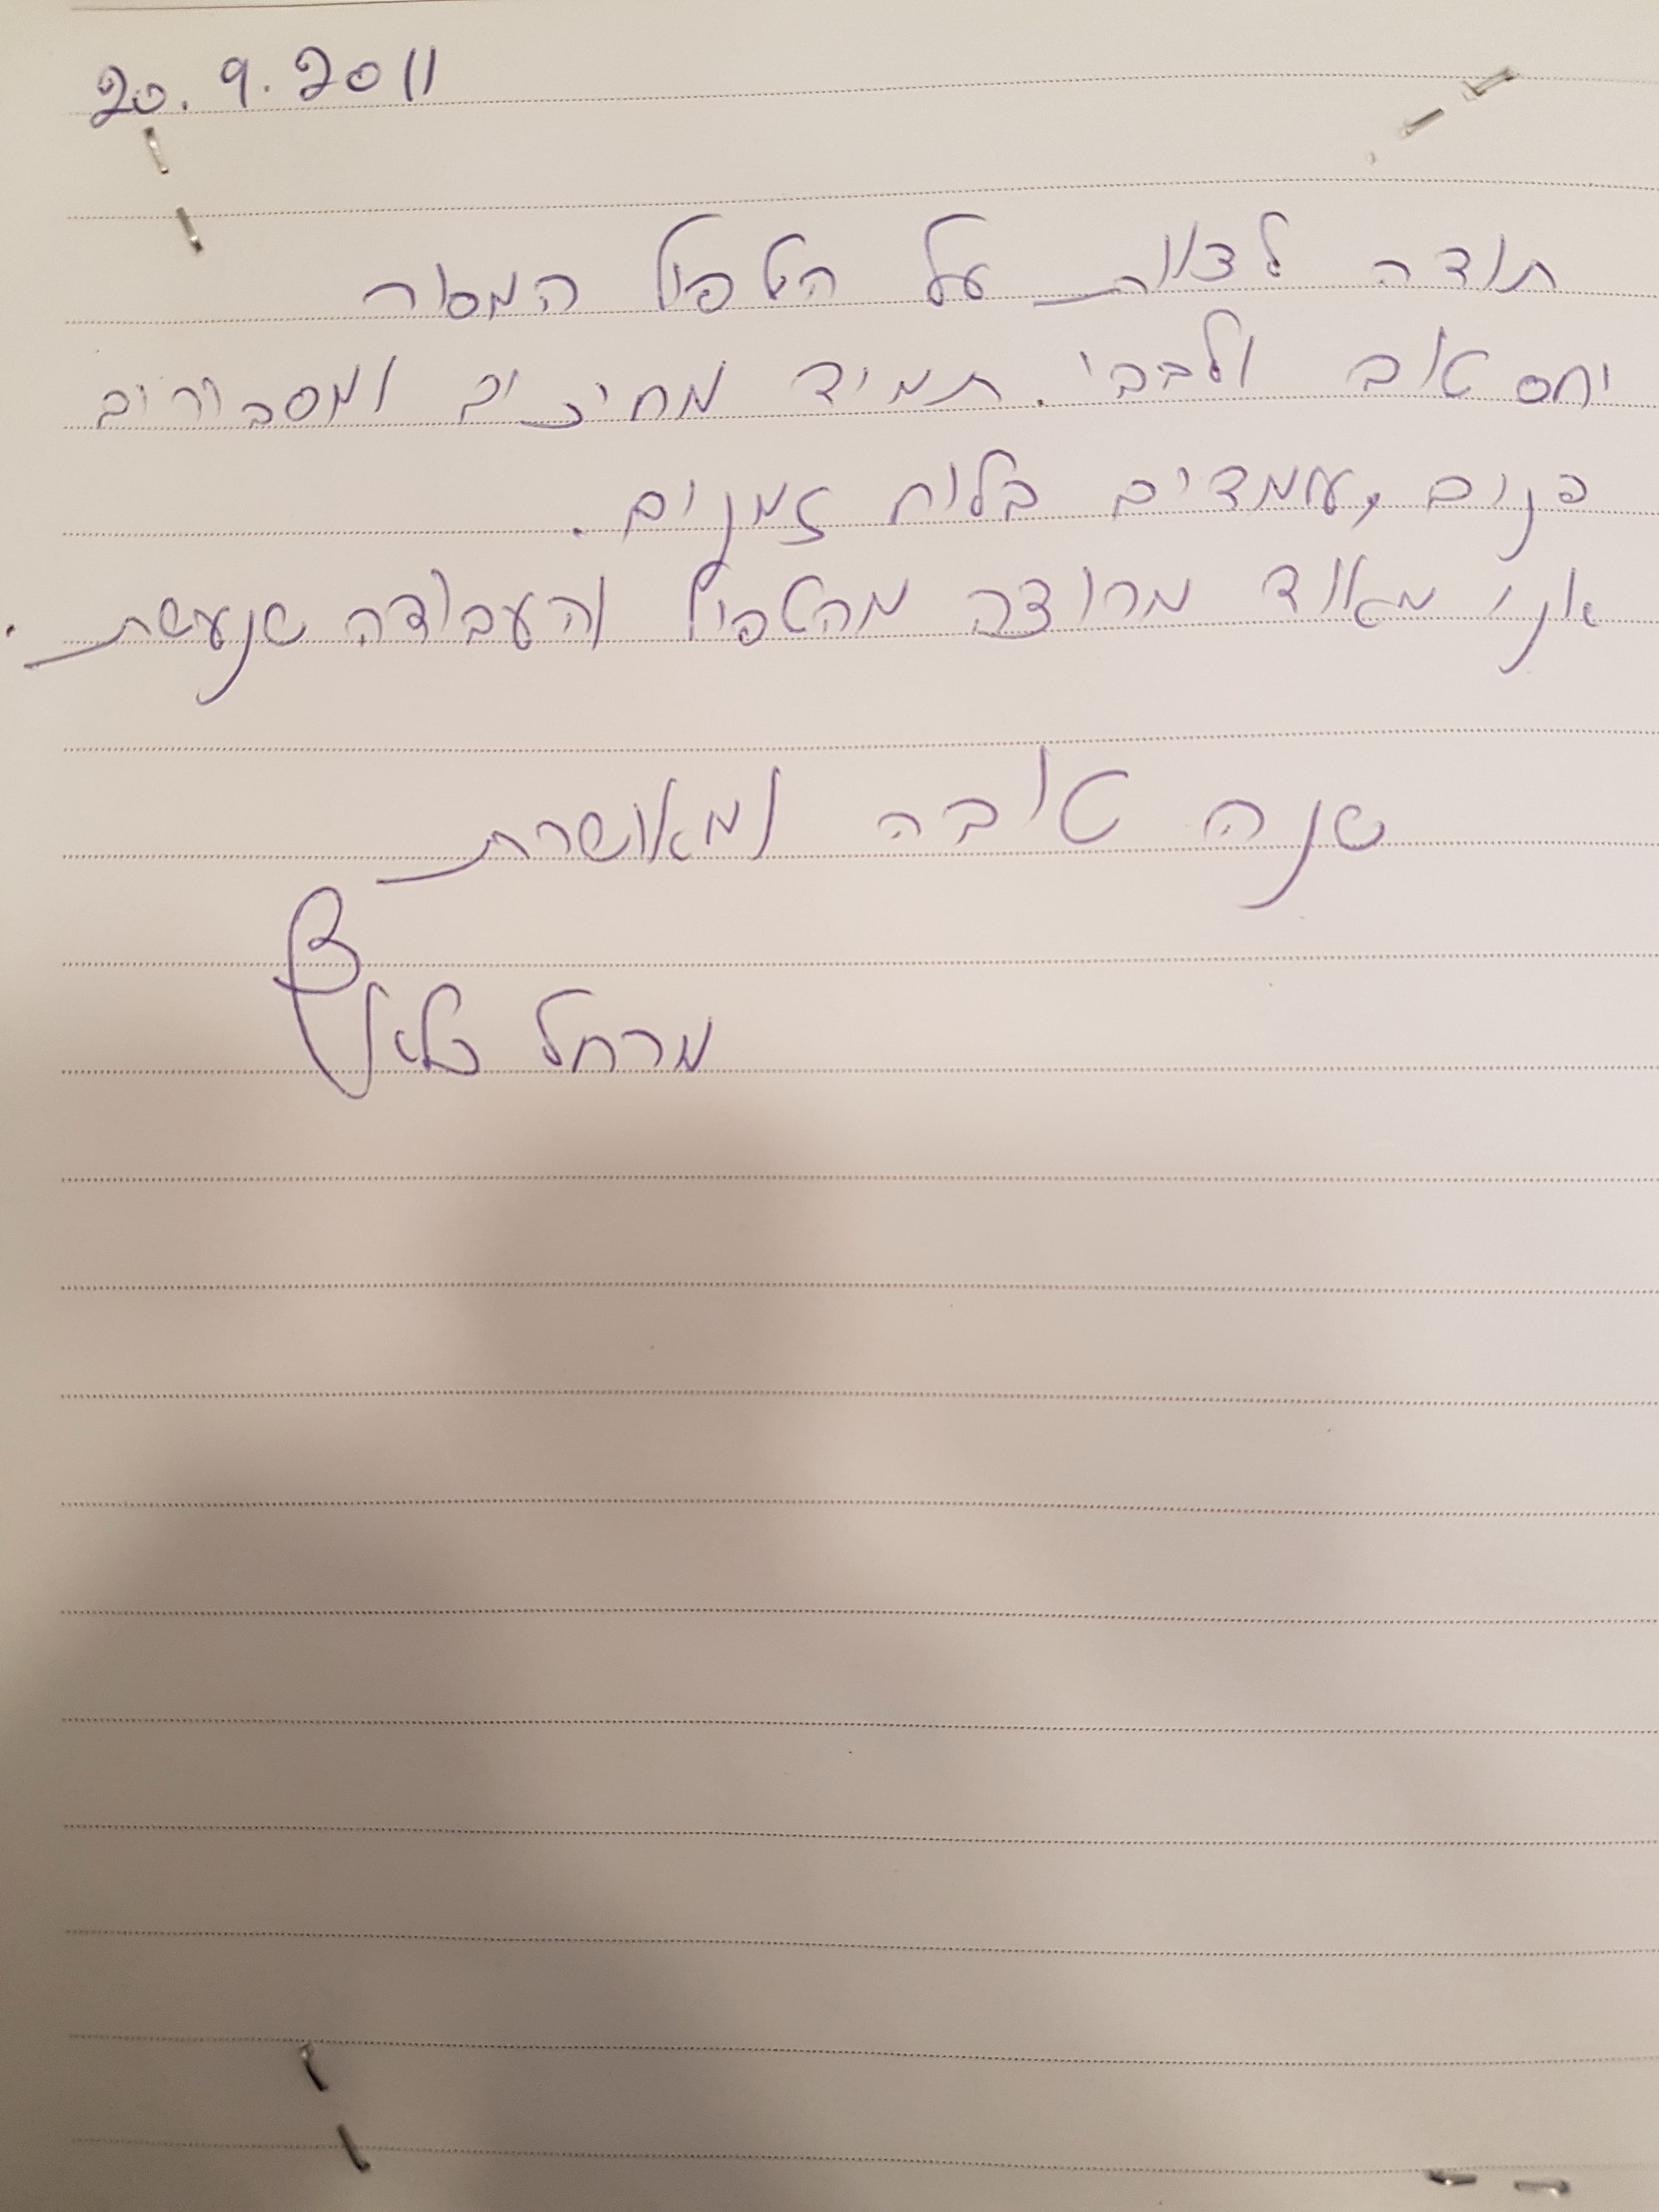 20.9.2011
תודה לצוות על הטפול המסור
יחס טוב ולבבי. תמיד מחיכים ומסבירים
פנים, עומדים בלוח זמנים.
אני מאוד מרוצה מהטפול והעבודה שנעשת.
שנה טובה ומאושרת
מרחל